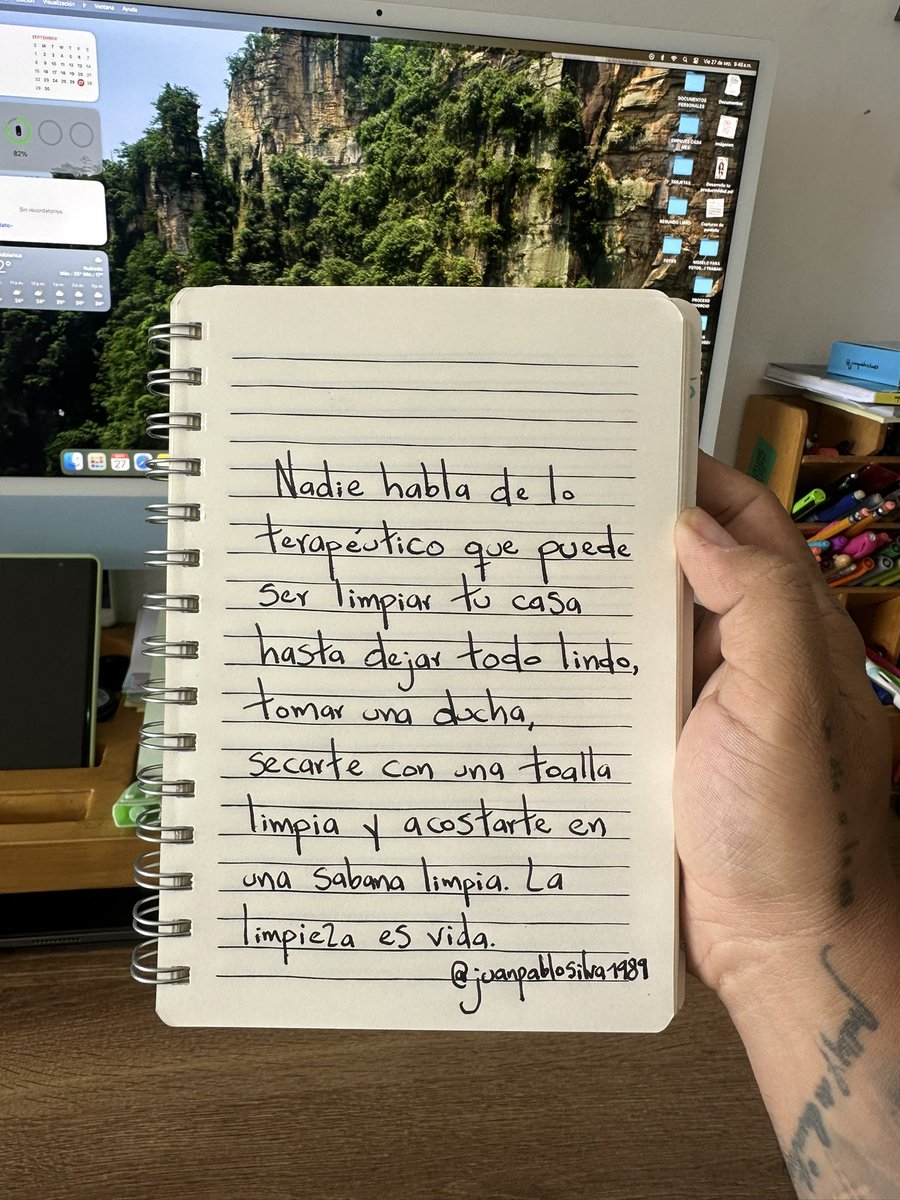 Visualización Ir Ventana Ayuda
Vie 27 de sep. 9:48 a.m.
SEPTEMBER
27
82%
Sin recordatorios
Nublado
DOCUMENTOS PERSONALES
Documentos
Imágenes
TARJETAS
SEGUNDO LIBRO
Capturas de pantalla
FOTOS
27
Nadie habla de lo
terapéutico que puede
ser limpiar tu casa
hasta dejar todo lindo,
tomar una ducha,
secarte con una toalla
limpia y acostarte en
una sabana limpia. La
limpieza es vida.
@juanpablosilva1989